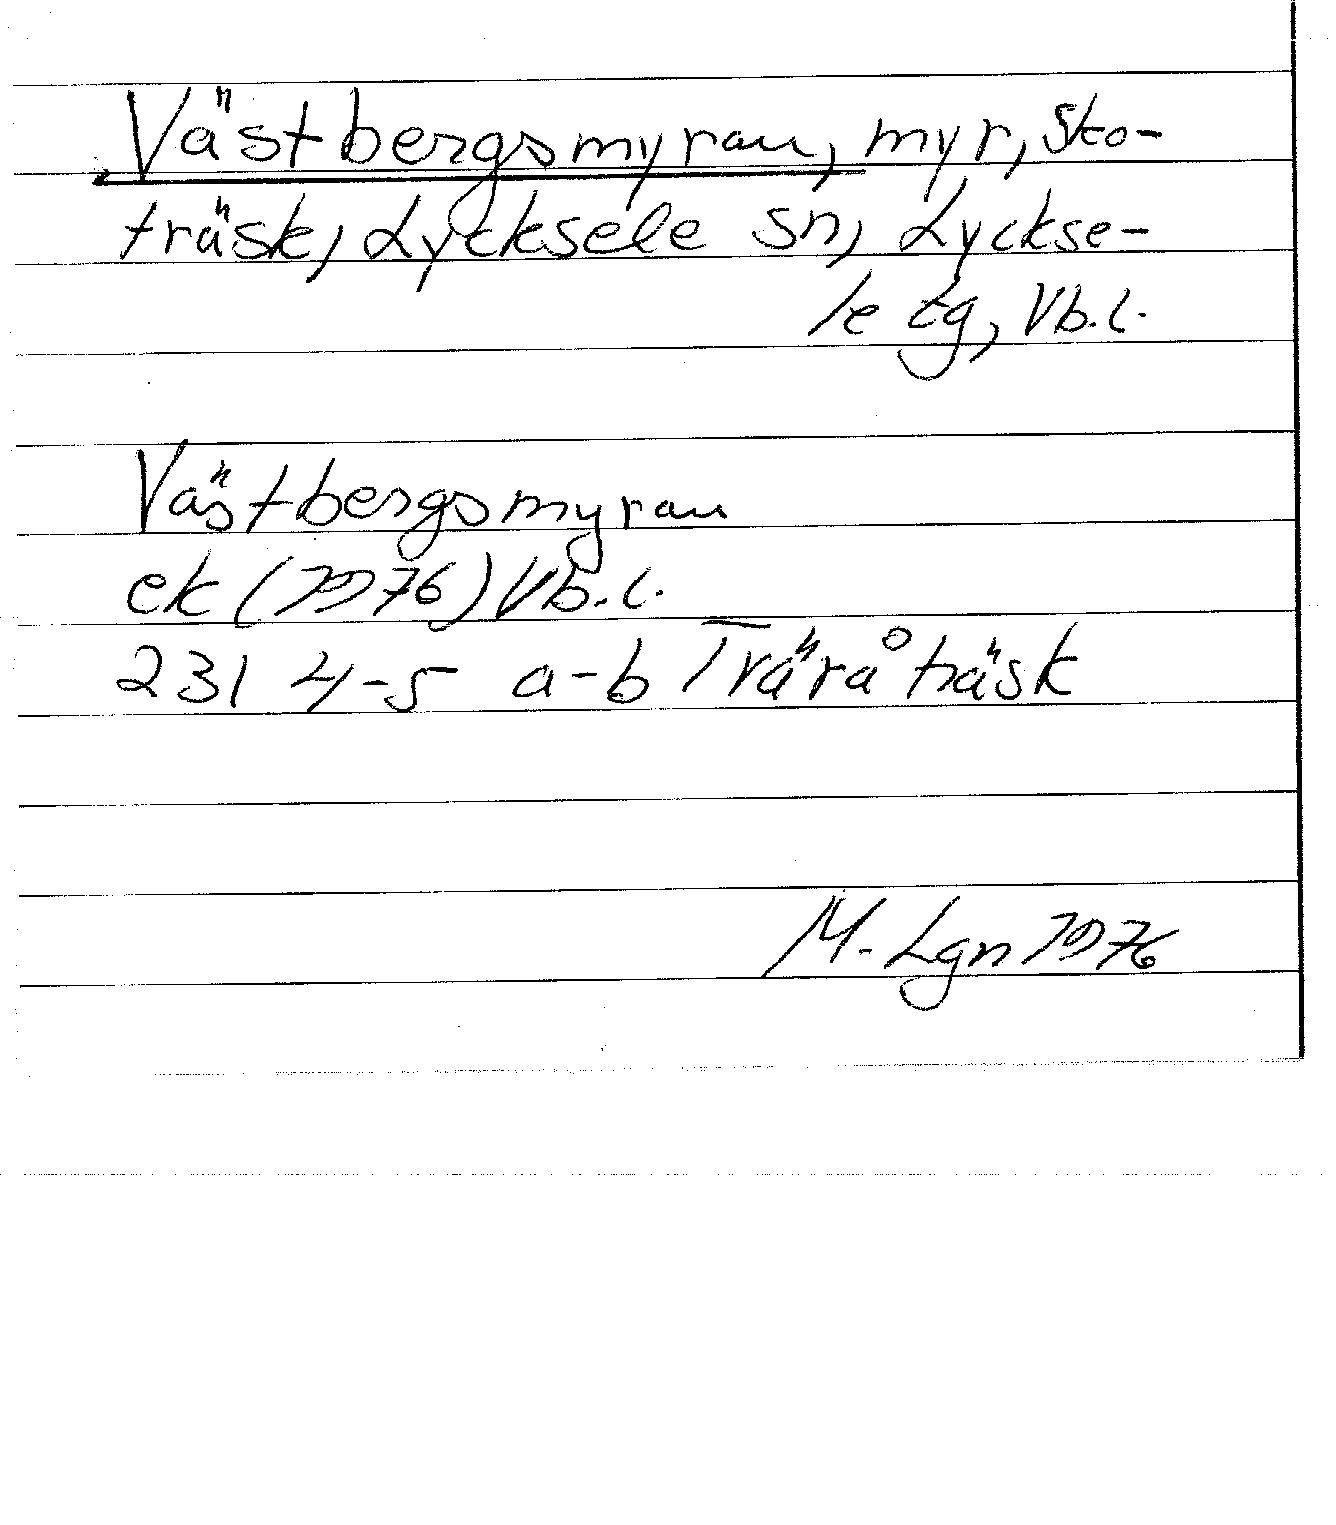 Västbergsmyran, myr, Sko-
träsk, Lycksele sn, Lyckse-
le tg, Vb.l.
Västbergsmyran
ek (1976) Vb.l.
231 4-5 a-b Tväråträsk
M. Lgn 1976